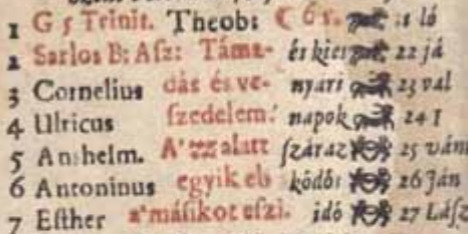 1 G 5 Trinit. Theob: ☾ 6 5. ló
2 Sarlos B: Asz: Táma- és kies 22 já
3 Cornelius dás és ve- nyári 23 val
4 Ulricus szedelem. napok 24 1
5 Anshelm. A' alatt száraz 25 ván
6 Antoninus egyik elö ködös 26 Ján
7 Esther a' másikot eszi. idö 27 Lász